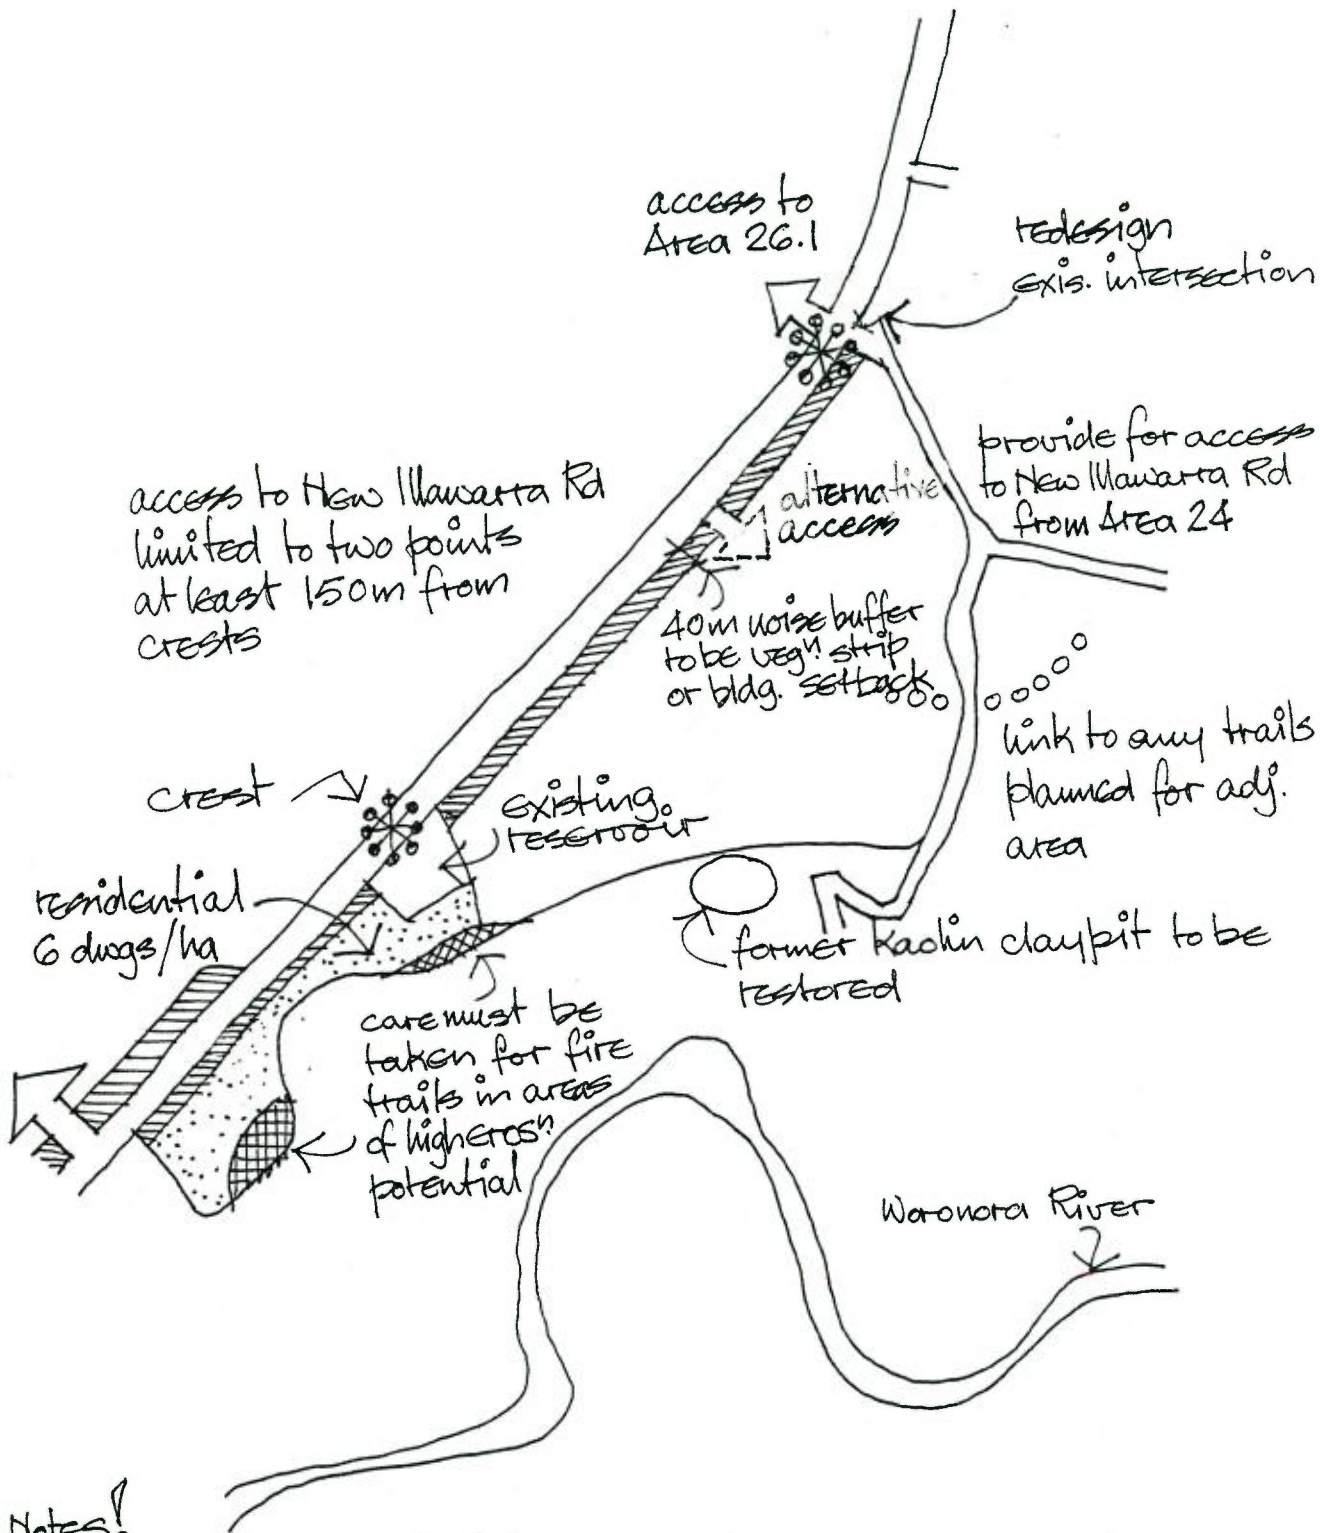 access to
Area 26.1
redesign
exis. intersection
provide for access
to New Illawarra Rd
from Area 24
access to New Illawarra Rd
limited to two points
at least 150m from
crests
alternative
access
40m noise buffer
to be vegⁿ. strip
or bldg. setback
link to any trails
planned for adj.
area
crest
existing
reservoir
residential
6 dwgs/ha
former kaolin claypit to be
restored
care must be
taken for fire
trails in areas
of high erosⁿ.
potential
Woronora River
Notes!